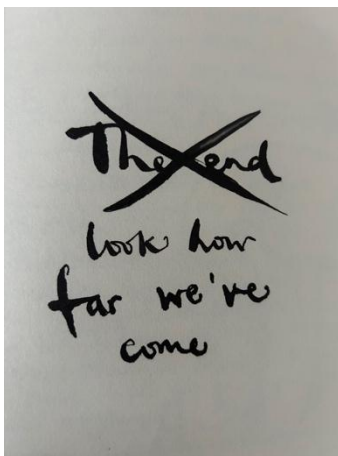 The end
look how
far we've
come